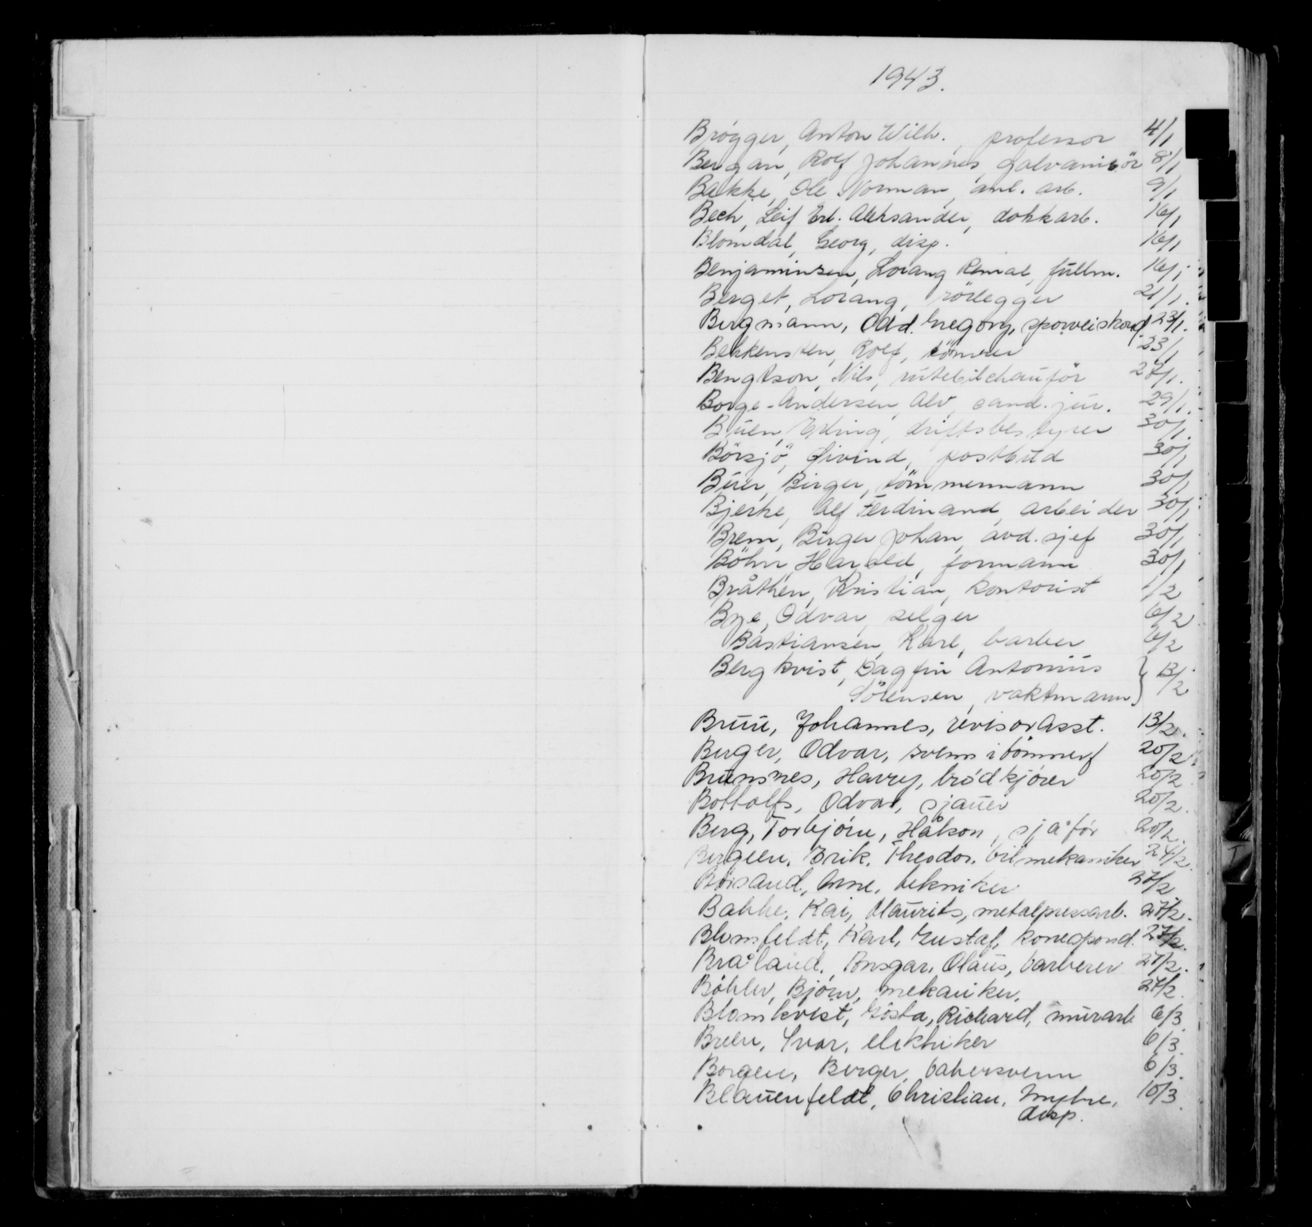 1943.
Brøgger, Anton Wilh., professor 4/1
Bergan, Rolf Johannes galvanisör 8/1
Bakke, Ole Norman, anl. arb. 9/1
Bech, Leif Erl. Aleksander, dokkarb. 16/1
Blomdal, Georg, disp. 16/1
Benjaminsen, Lorang Remal, fullm. 16/1
Berget, Lorang, rörlegger 21/1.
Bergmann, Odd. Gregory, 23/1.
Bekkensten, Rolf, tömrer 23/1
Bengtson, Nils, rutebilchauför 27/1.
Borge-Andersen, Alv, cand. jur. 29/1.
Bruen, Erling, driftsbestyrer 30/1
Börsjö, Øivind, postbud 30/1
Buer, Birger, tömmermann 30/1
Bjerke, Alf Ferdinand, arbeider 30/1
Brem, Birger Johan, avd. sjef 30/1
Böhn, Harald, formann 30/1
Bråthen, Kristian, kontorist 1/2
Bye, Odvar, selger 6/2
Bastiansen, Karl, barber 6/2
Bergkvist, Dagfin Antonius } 13/2
Sörensen, vaktmann
Bruu, Johannes, revisorasst. 13/2.
Berger, Odvar, svenn i tömmerf 20/2
Brunsnes, Harry, brødkjører 20/2
Bottolfs, Odvar, sjauer 20/2.
Berg, Torbjørn, Håkon, sjåför 20/2.
Bergeen, Erik, Theodor, bilmekaniker 24/2.
Børsand, Arne, tekniker 27/2
Bakke, Kai, Maurits, metalpressarb. 27/2.
Blomfeldt, Karl, Gustaf, korrespond. 27/2.
Bråland, Ansgar, Olaus, barberer 27/2.
Böhler, Bjørn, mekaniker. 27/2.
Blomkvist, Gösta, Richard, murarb 6/3.
Breen, Ivar, elektriker 6/3.
Borgen, Birger, bakersvenn 6/3.
Blauenfeldt, Christian, Myhre, 10/3.
disp.